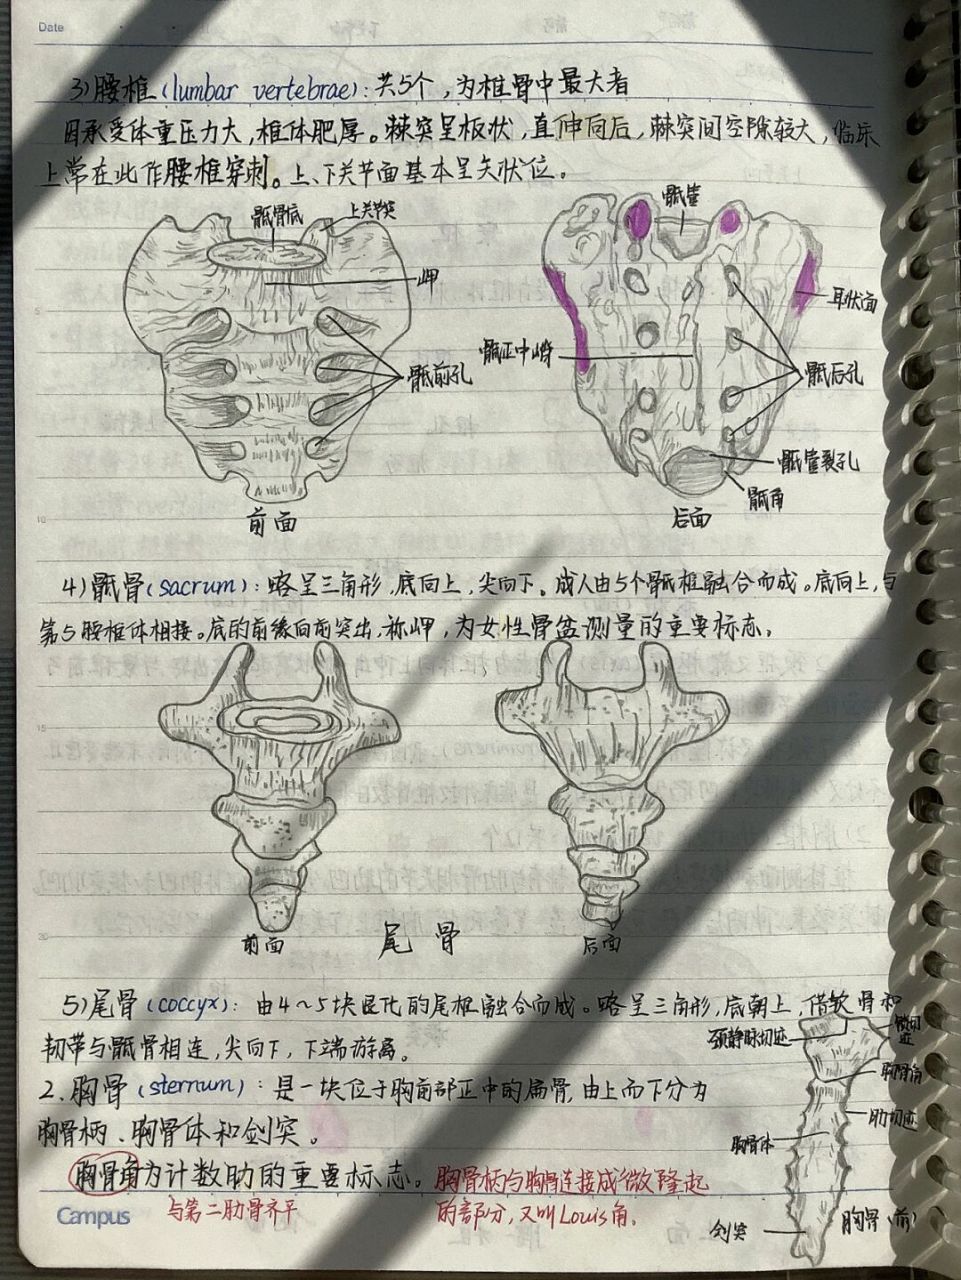 Date
3)腰椎(lumbar vertebrae):共5个,为椎骨中最大者
因承受体重压力大,椎体肥厚。棘突呈板状,直伸向后,棘突间空隙较大,临床
上常在此作腰椎穿刺。上、下关节面基本呈矢状位。
骶骨底
上关节突
岬
骶前孔
前面
骶管
耳状面
骶正中嵴
骶后孔
骶管裂孔
骶角
后面
4)骶骨(sacrum):略呈三角形,底向上,尖向下。成人由5个骶椎融合而成。底向上,与
第5腰椎体相接。底的前缘向前突出,称岬,为女性骨盆测量的重要标志。
前面
尾骨
后面
5)尾骨(coccyx):由4~5块退化的尾椎融合而成。略呈三角形,底朝上,借软骨和
韧带与骶骨相连,尖向下,下端游离。
2.胸骨(sternum):是一块位于胸前部正中的扁骨,由上而下分为
胸骨柄、胸骨体和剑突。
胸骨角为计数肋的重要标志。
与第二肋骨齐平
胸骨柄与胸骨连接成微隆起
的部分,又叫Louis角。
颈静脉切迹
锁切迹
胸骨角
肋切迹
胸骨体
剑突
胸骨(前)
Campus
5
10
15
20